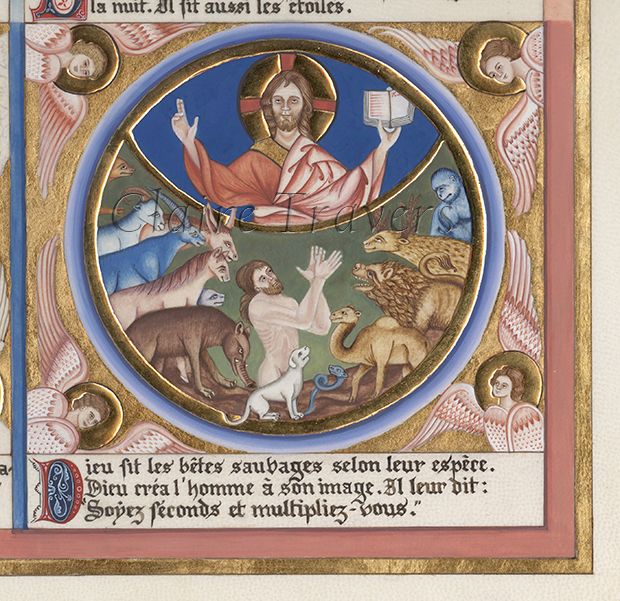 la nuit. Il fit aussi les étoiles.
Claire Travers
Dieu fit les bêtes sauvages selon leur espèce.
Dieu créa l'homme à son image. Il leur dit:
Soyez féconds et multipliez-vous."